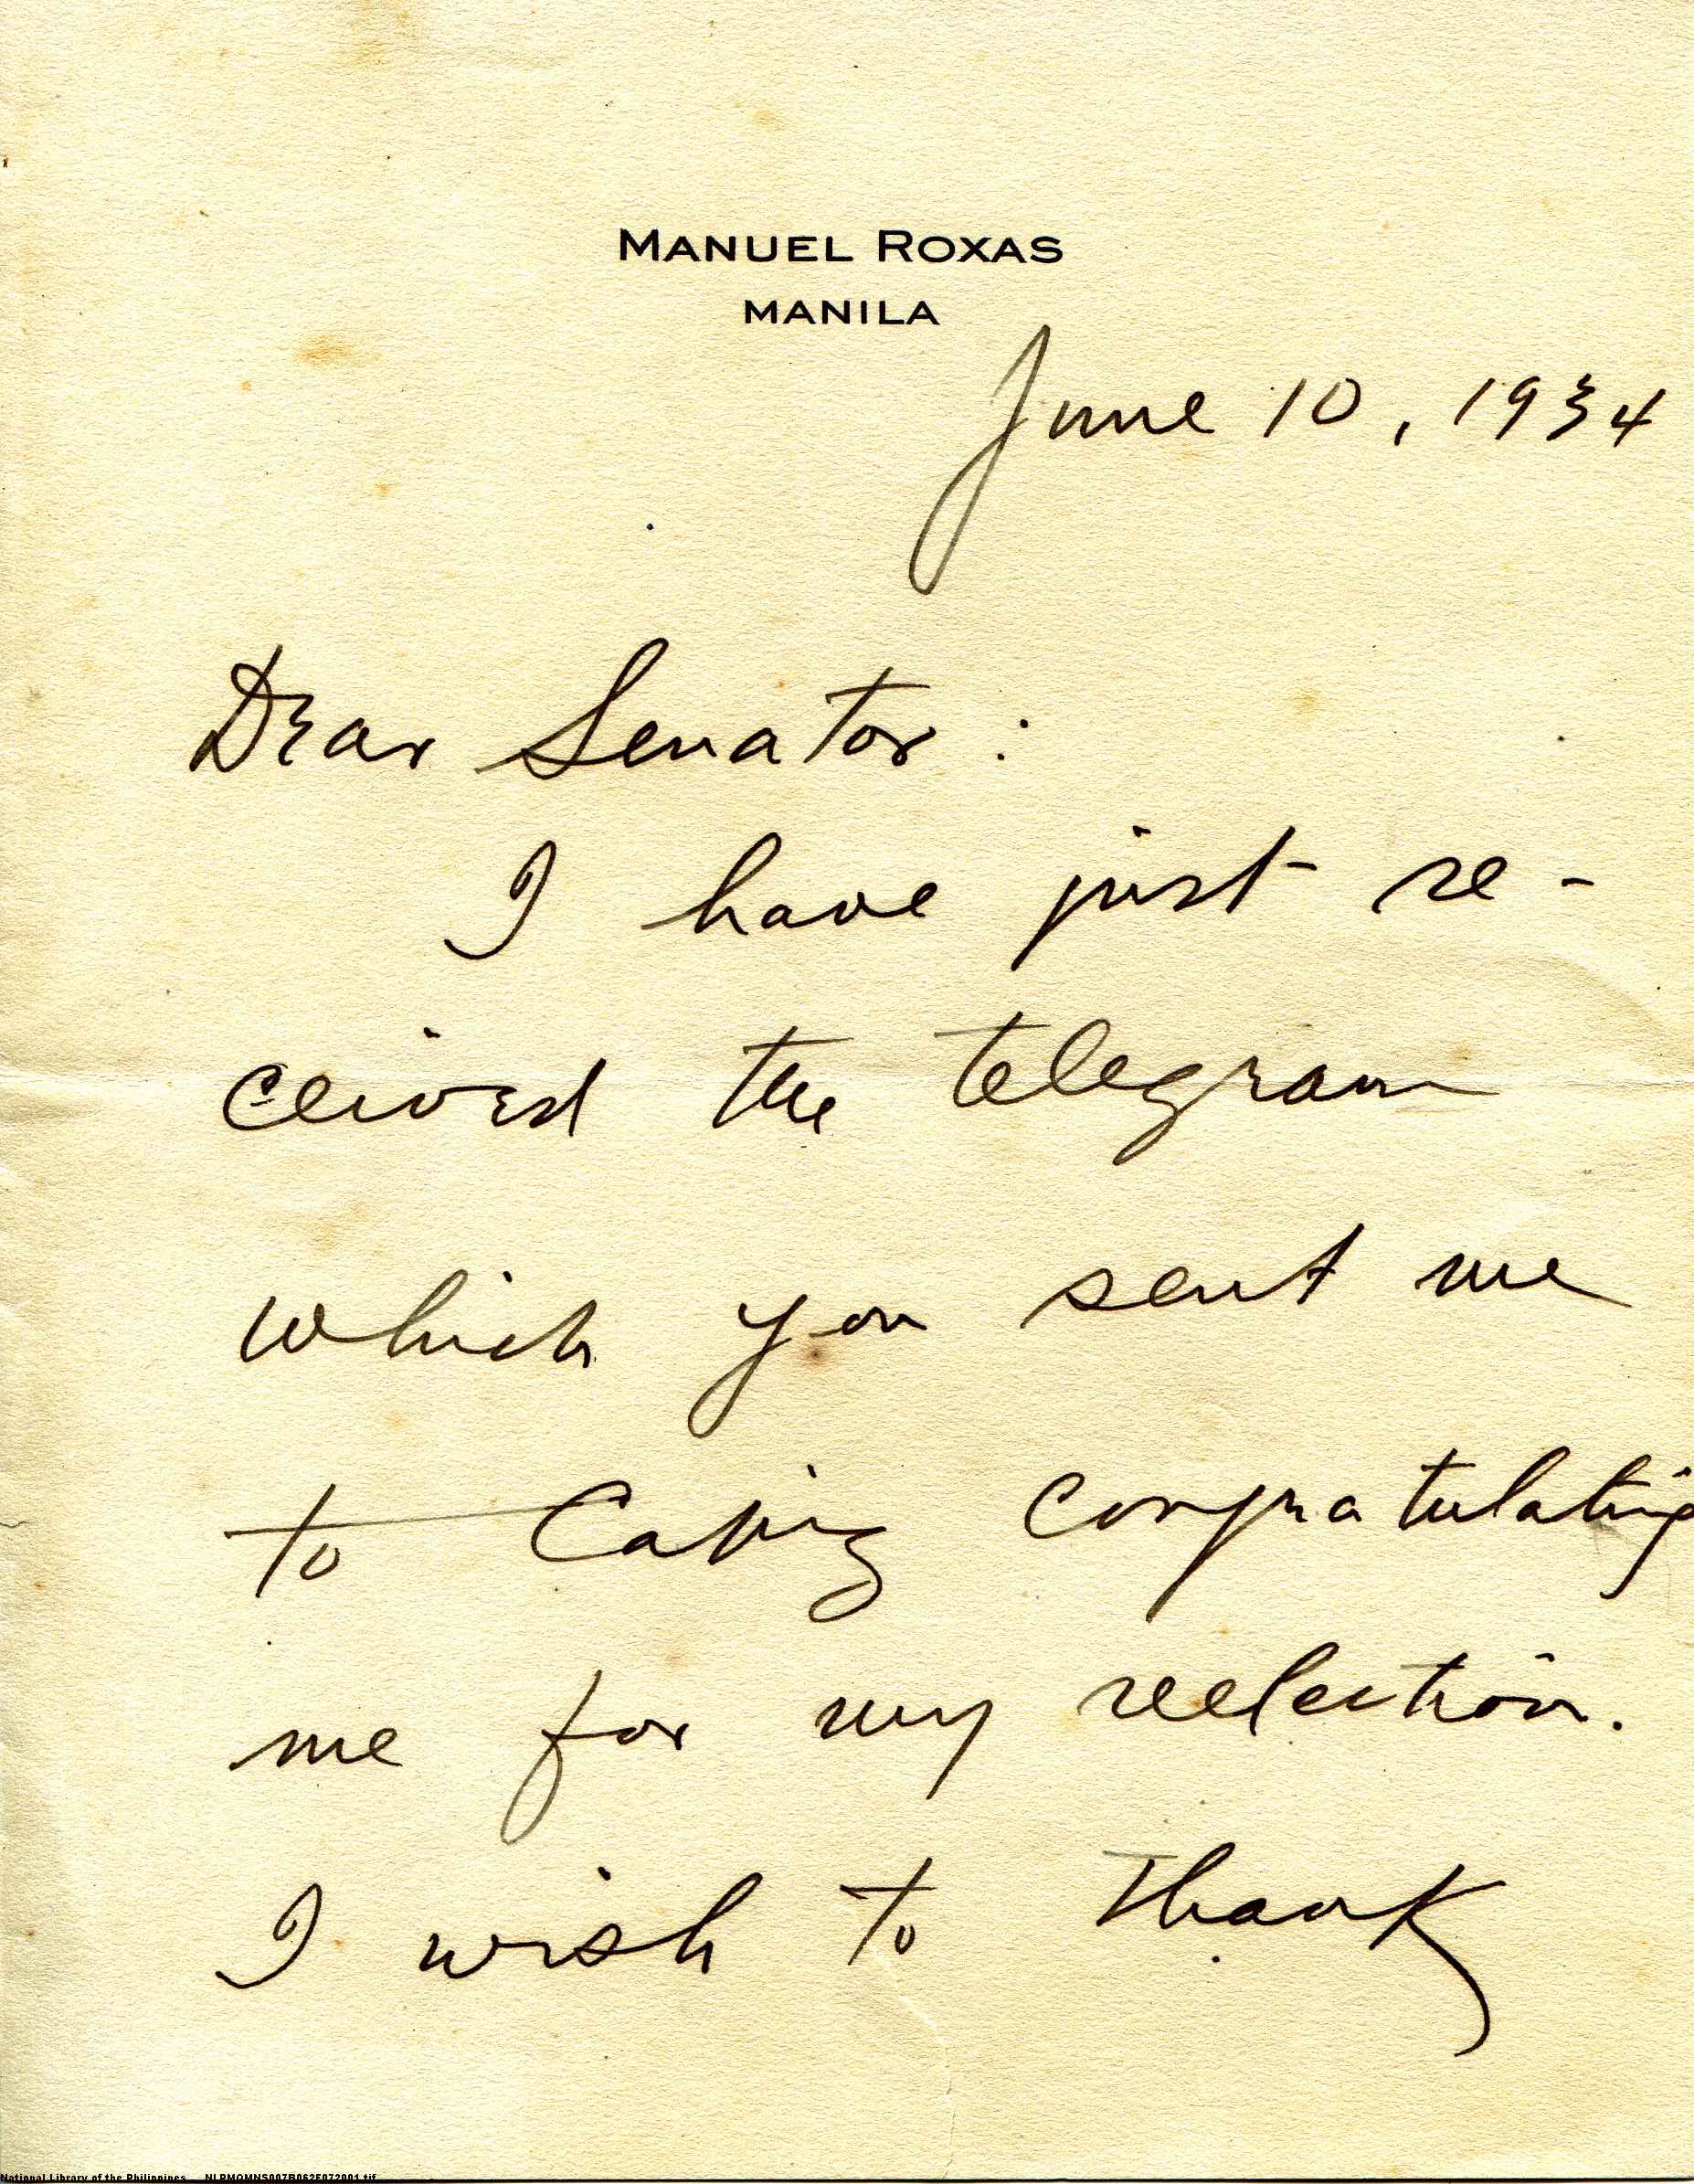 MANUEL ROXAS
MANILA
June 10, 1934
Dear Senator:
I have just re-
ceived the telegram
which you sent me
to Capiz congratulating
me for my reelection.
I wish to thank
National Library of the Philippines NLPMQMNS007B062F072001.tif